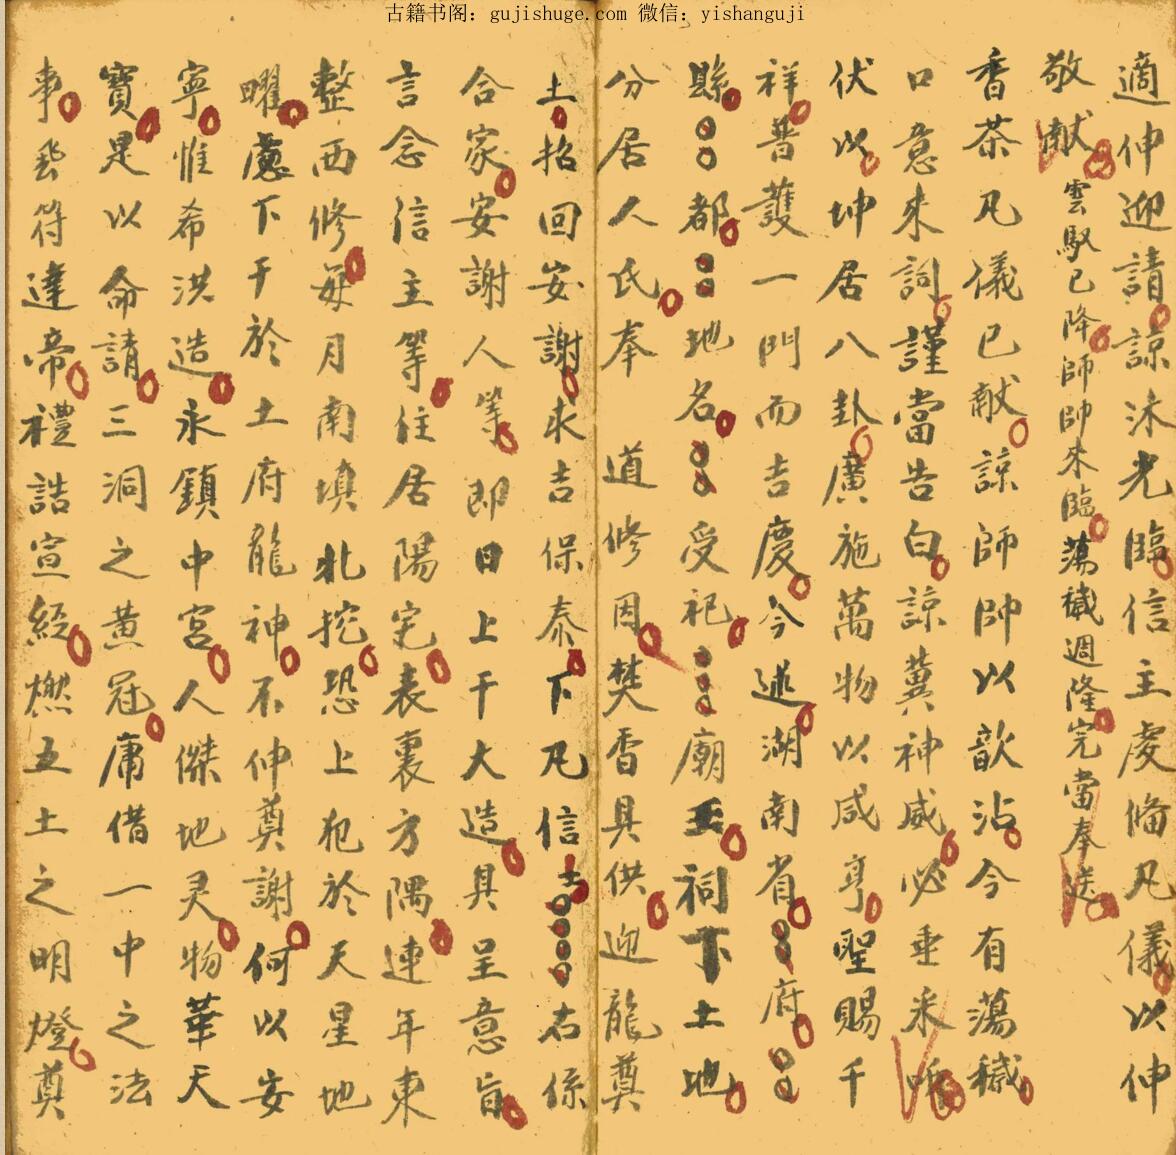 古籍书阁：gujishuge.com 微信：yishanguji
適伸迎請諒沐光臨信主虔俻凡儀以伸
敬献雲馭已降師帥來臨蕩穢週隆完當奉送
香茶凡儀已献諒師帥以歆沾今有蕩穢
口意来詞謹當告白諒冀神威必垂采听
伏以坤居八卦廣施萬物以咸亨聖賜千
祥普護一門而吉慶今述湖南省〇〇府〇〇
縣〇〇都〇〇地名〇〇受祀〇〇〇廟王祠下土地
分居人氏奉道修因焚香具供迎龍奠
土招回安謝求吉保泰下凡信士〇〇〇〇右係
合家安謝人等即日上干大造具呈意旨
言念信主等住居陽宅表裏方隅連年東
整西修每月南填北挖恐上犯於天星地
曜慮下干於土府龍神不伸奠謝何以安
寧惟希洪造永鎮中宮人傑地灵物華天
寶是以命請三洞之黄冠庸借一中之法
事發符達帝禮誥宣經燃五土之明燈奠